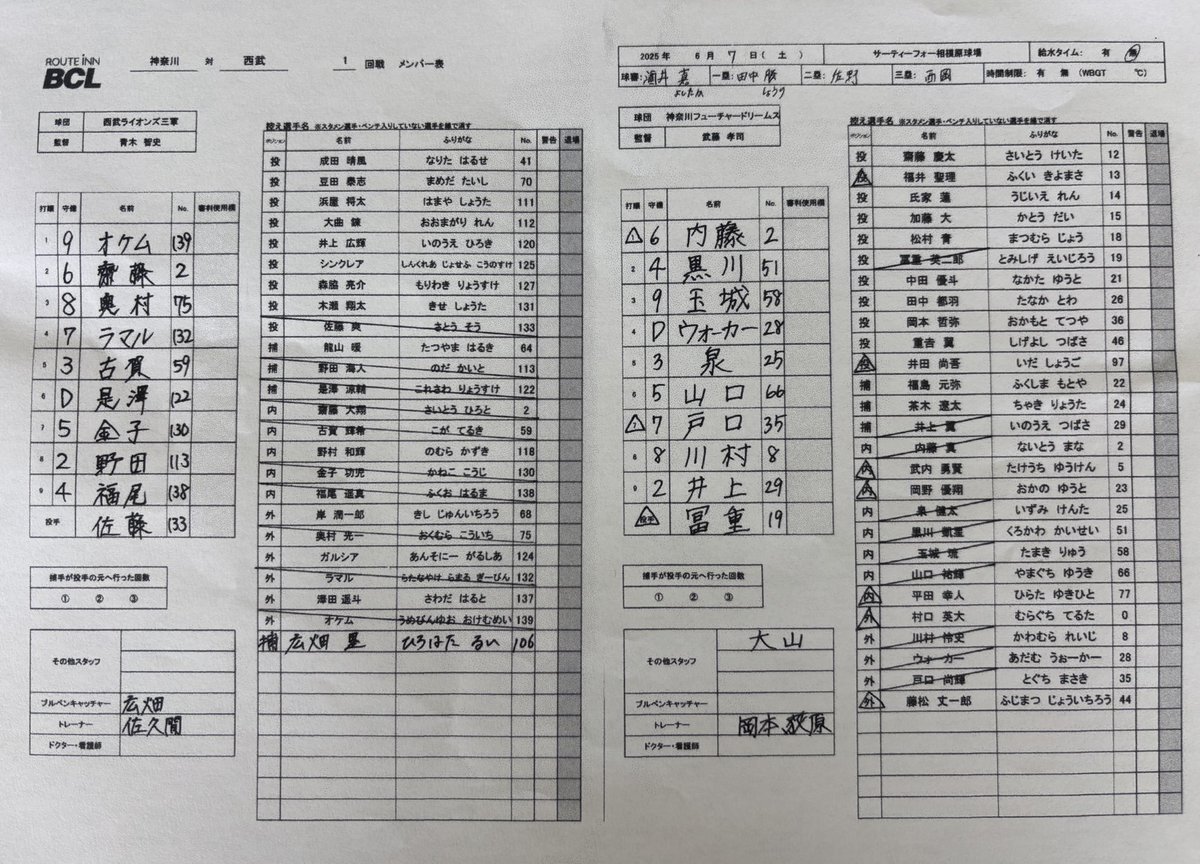 ROUTE INN
BCL
神奈川 対 西武 1 回戦 メンバー表
球団 西武ライオンズ三軍
監督 青木 智史
打順 守備 名前 No. 審判使用欄
1 9 オケム 139
2 6 齋藤 2
3 8 奥村 75
4 7 ラマル 132
5 3 古賀 59
6 D 是澤 122
7 5 金子 130
8 2 野田 113
9 4 福尾 138
投手 佐藤 133
捕手が投手の元へ行った回数
① ② ③
その他スタッフ
ブルペンキャッチャー 広畑
トレーナー 佐久間
ドクター・看護師
控え選手名 ※スタメン選手・ベンチ入りしていない選手を線で消す
ポジション 名前 ふりがな No. 警告 退場
投 成田 晴風 なりた はるせ 41
投 豆田 泰志 まめだ たいし 70
投 浜屋 将太 はまや しょうた 111
投 大曲 錬 おおまがり れん 112
投 井上 広輝 いのうえ ひろき 120
投 シンクレア しんくれあ じょせふ こうのすけ 125
投 森脇 亮介 もりわき りょうすけ 127
投 木瀬 翔太 きせ しょうた 131
投 佐藤 爽 さとう そう 133
捕 龍山 暖 たつやま はるき 64
捕 野田 海人 のだ かいと 113
捕 是澤 涼輔 これさわ りょうすけ 122
内 齋藤 大翔 さいとう ひろと 2
内 古賀 輝希 こが てるき 59
内 野村 和輝 のむら かずき 118
内 金子 功児 かねこ こうじ 130
内 福尾 遥真 ふくお はるま 138
外 岸 潤一郎 きし じゅんいちろう 68
外 奥村 光一 おくむら こういち 75
外 ガルシア あんそにー がるしあ 124
外 ラマル らたなやけ らまる ぎーびん 132
外 澤田 遥斗 さわだ はると 137
外 オケム うめびんゆお おけむめい 139
捕 広畑 塁 ひろはた るい 106
2025 年 6 月 7 日 ( 土 ) サーティーフォー相模原球場 給水タイム: 有 無
球審: 酒井 真 一塁: 田中 勝 二塁: 佐野 三塁: 西岡 時間制限: 有 無 (WBGT ℃)
球団 神奈川フューチャードリームス
監督 武藤 孝司
打順 守備 名前 No. 審判使用欄
1 6 内藤 2
2 4 黒川 51
3 9 玉城 58
4 D ウォーカー 28
5 3 泉 25
6 5 山口 66
7 7 戸口 35
8 8 川村 8
9 2 井上 29
投手 冨重 19
捕手が投手の元へ行った回数
① ② ③
その他スタッフ 大山
ブルペンキャッチャー
トレーナー 岡本 萩原
ドクター・看護師
控え選手名 ※スタメン選手・ベンチ入りしていない選手を線で消す
ポジション 名前 ふりがな No. 警告 退場
投 齋藤 慶太 さいとう けいた 12
投 福井 聖理 ふくい きよまさ 13
投 氏家 蓮 うじいえ れん 14
投 加藤 大 かとう だい 15
投 松村 青 まつむら じょう 18
投 冨重 英二郎 とみしげ えいじろう 19
投 中田 優斗 なかた ゆうと 21
投 田中 都羽 たなか とわ 26
投 岡本 哲弥 おかもと てつや 36
投 重吉 翼 しげよし つばさ 46
投 井田 尚吾 いだ しょうご 97
捕 福島 元弥 ふくしま もとや 22
捕 茶木 遼太 ちゃき りょうた 24
捕 井上 翼 いのうえ つばさ 29
内 内藤 真 ないとう まな 2
内 武内 勇賢 たけうち ゆうけん 5
内 岡野 優翔 おかの ゆうと 23
内 泉 健太 いずみ けんた 25
内 黒川 凱星 くろかわ かいせい 51
内 玉城 琉 たまき りゅう 58
内 山口 祐輝 やまぐち ゆうき 66
内 平田 幸人 ひらた ゆきひと 77
外 村口 英大 むらぐち てるた 0
外 川村 伶史 かわむら れいじ 8
外 ウォーカー あだむ うぉーかー 28
外 戸口 尚輝 とぐち まさき 35
外 藤松 丈一郎 ふじまつ じょういちろう 44